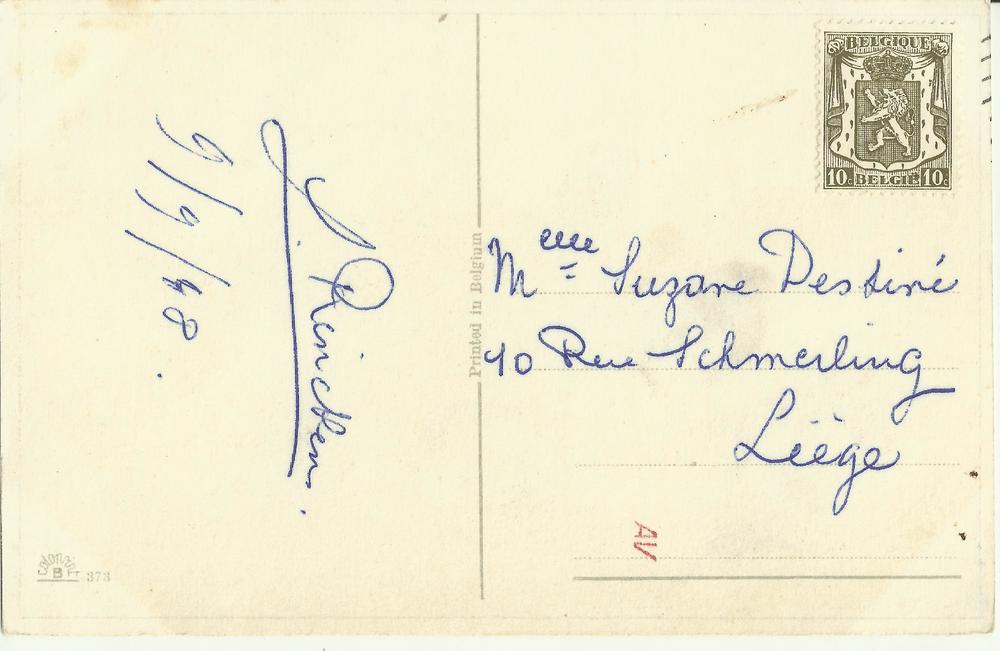 9/9/48.
J. Reinckens.
BELGIQUE
10c BELGIË 10c
Printed in Belgium
Melle Suzane Destiné
40 Rue Schmerling
Liège
AV
COLORPRINT
B
373